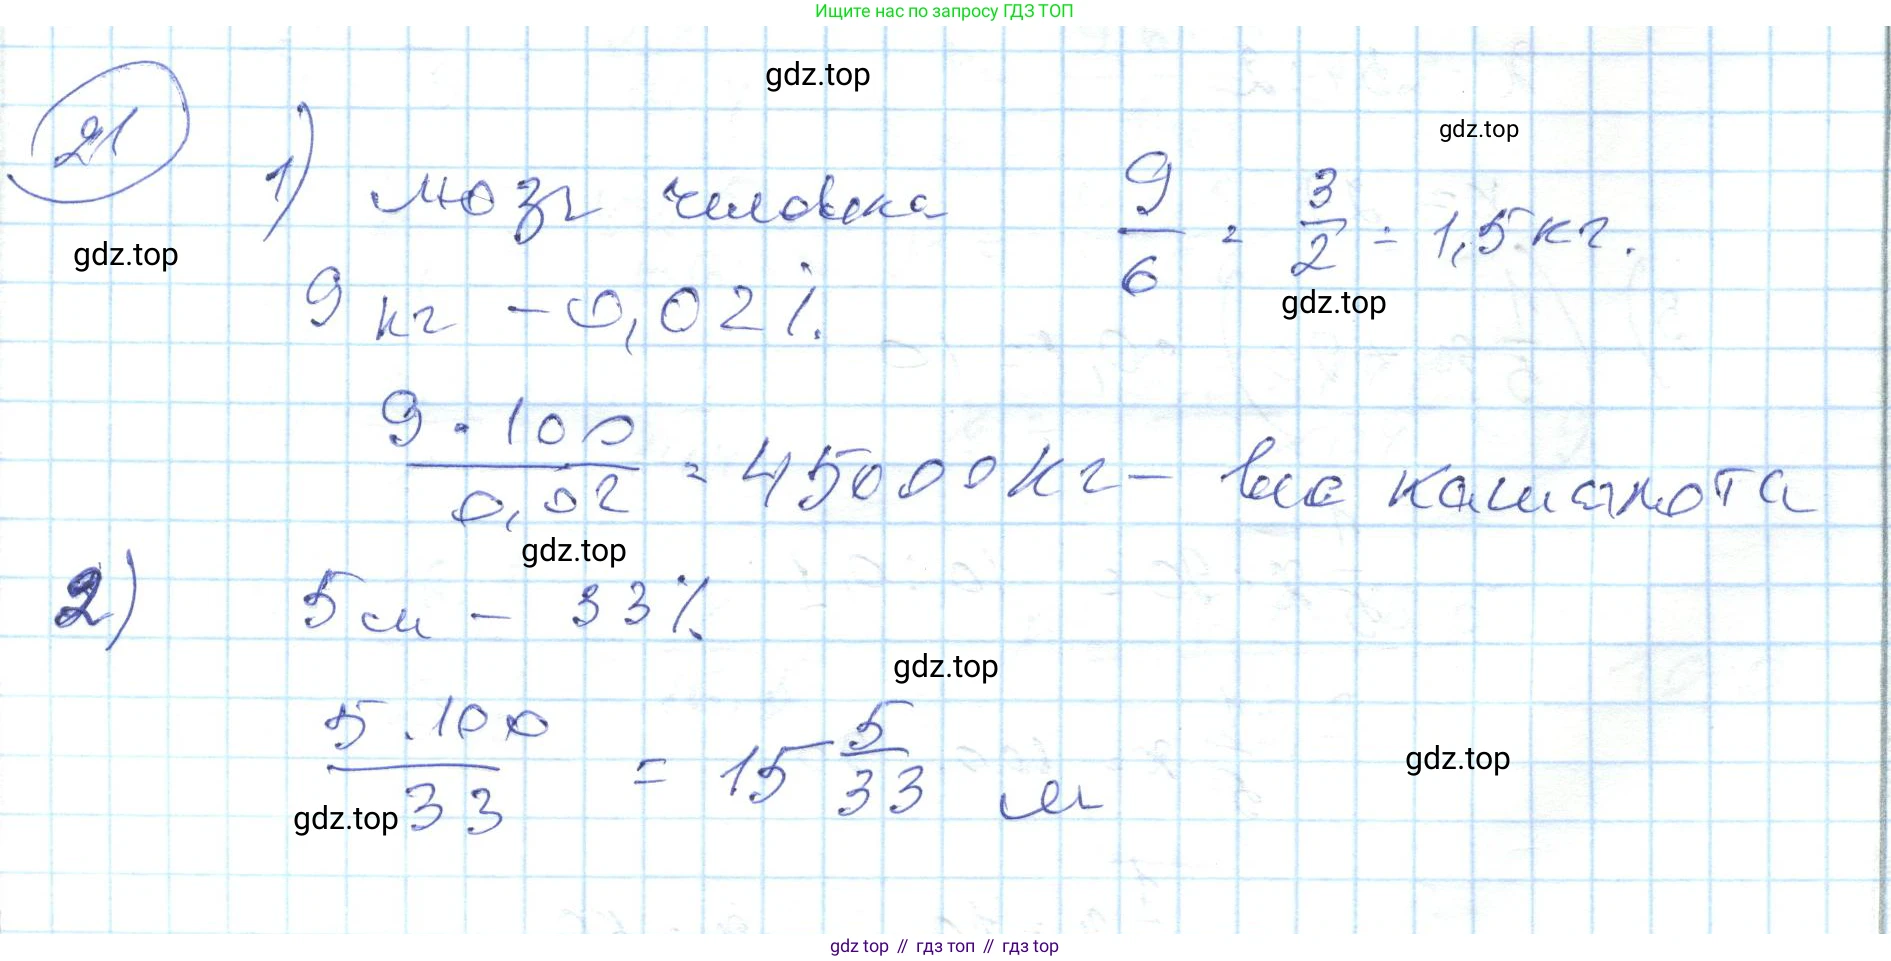 Ищите нас по запросу ГДЗ ТОП
gdz.top
gdz.top
21
1) мозг человека 9/6 = 3/2 = 1,5 кг.
gdz.top
gdz.top
9 кг - 0,02 %
9 · 100 / 0,02 = 45000 кг - вес кашалота
gdz.top
2) 5 м - 33 %
gdz.top
5 · 100 / 33 = 15 5/33 м
gdz.top
gdz.top
gdz top // гдз топ // гдз top